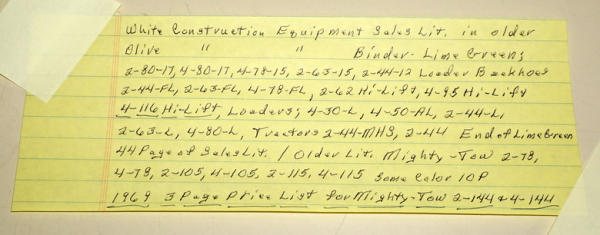 White Construction Equipment Sales Lit. in older
Olive " " Binder - Lime Green;
2-80-17, 4-80-17, 4-78-15, 2-63-15, 2-44-12 Loader Backhoes
2-44-FL, 2-63-FL, 4-78-FL, 2-62 Hi-Lift, 4-95 Hi-Lift
4-116 Hi-Lift, Loaders; 4-30-L, 4-50-AL, 2-44-L,
2-63-L, 4-80-L, Tractors 2-44-MHS, 2-44 End of Lime Green
44 Page of Sales Lit. / Older Lit. Mighty-Tow 2-78,
4-78, 2-105, 4-105, 2-115, 4-115 some Color 10P
1969 3 Page Price List for Mighty-Tow 2-144 & 4-144